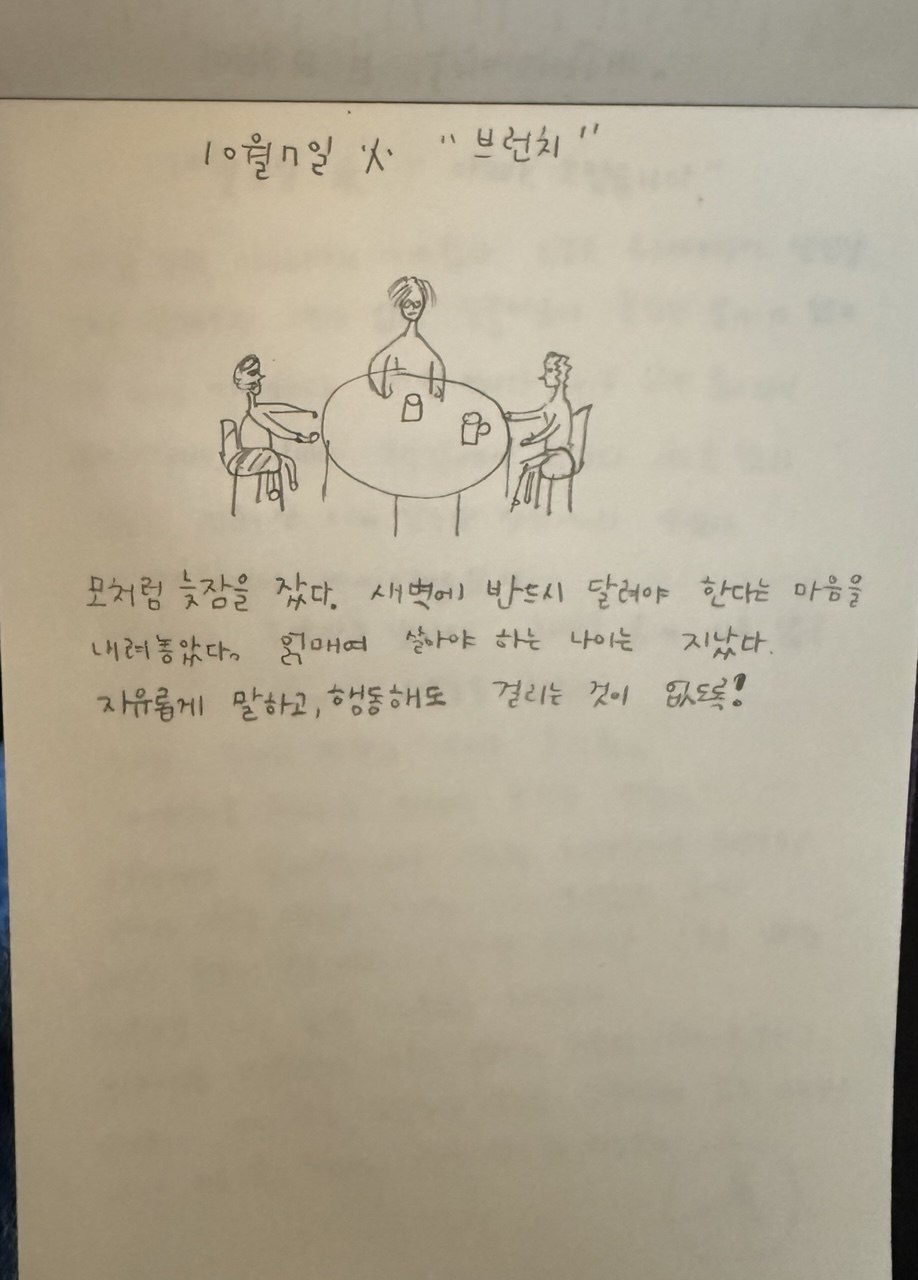 10월 7일 火 "브런치"
모처럼 늦잠을 잤다. 새벽에 반드시 달려야 한다는 마음을
내려놓았다. 얽매여 살아야 하는 나이는 지났다.
자유롭게 말하고, 행동해도 걸리는 것이 없도록!